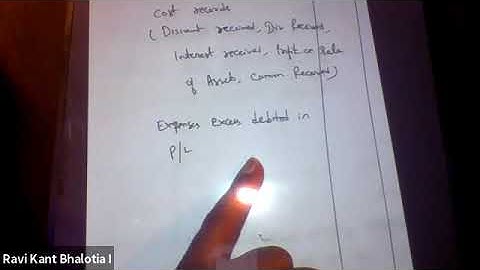 Cost records
(Discount received, Div Received,
Interest received, Profit on Sale
of Assets, Comm Received)
Expenses Excess debited in
P/L
Ravi Kant Bhalotia I